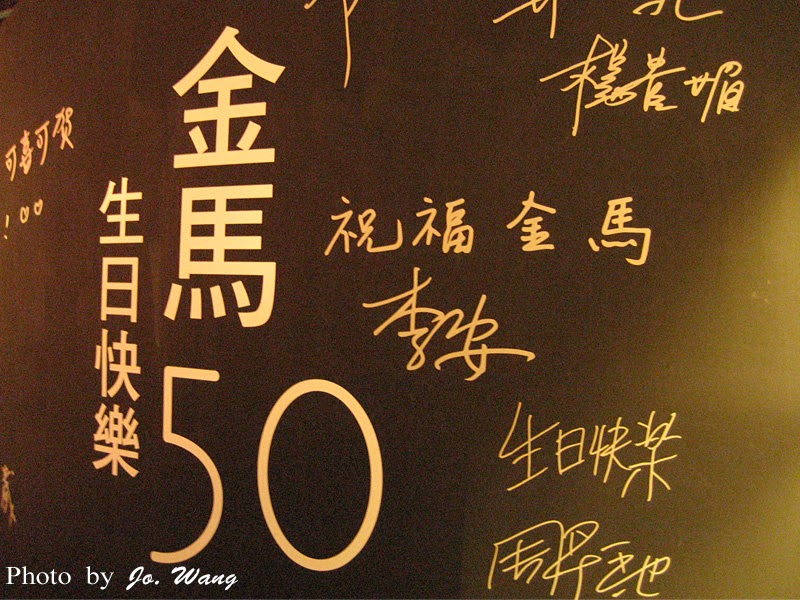 金馬
50
生日快樂
可喜可贺
!
楊貴媚
祝福金馬
李安
生日快樂
Photo by Jo. Wang